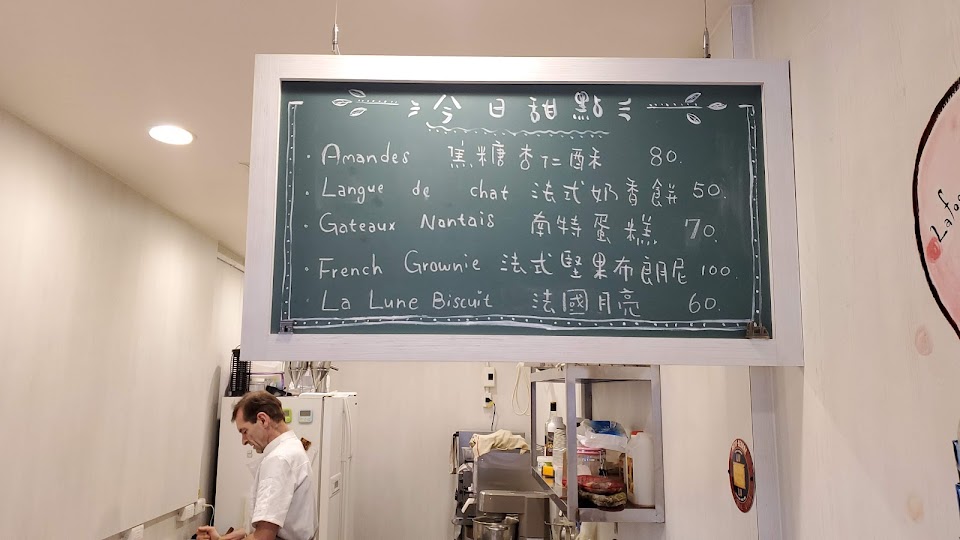 今日甜點
Amandes 焦糖杏仁酥 80.
Langue de chat 法式奶香餅 50.
Gateaux Nantais 南特蛋糕 70.
French Grownie 法式堅果布朗尼 100.
La Lune Biscuit 法國月亮 60.